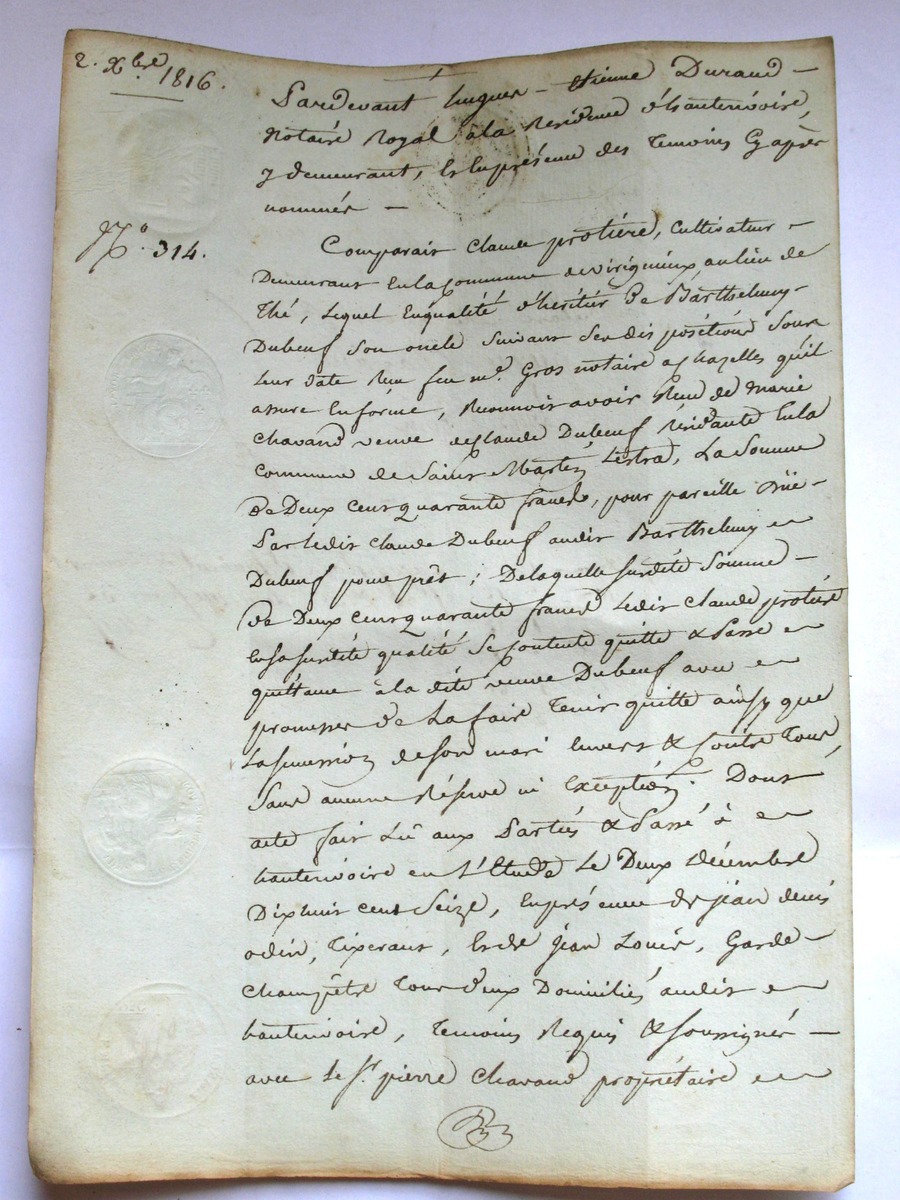 2. Xbre 1816.
Pardevant hugues - Etienne Durand -
Notaire Royal à la Résidence d'hauterivoire,
y demeurant, & En présence des Temoins Cy après
nommés -
N.o 314.
Comparait Claude protière, Cultivateur -
Demeurant En la Commune de virigneux, au lieu de
Thé, Lequel En qualité d'héritier De Barthelemy -
Dubeuf son oncle suivant ses dispositions sous
leur date Reçu feu me. Gros notaire a Chazelles qu'il
assure En forme, Reconnoit avoir Reçu de marie
Chavand veuve de Claude Dubeuf Résidante En la
Commune de Saint Martin Lestra, La Somme
De Deux Cens quarante francs, pour pareille düe -
Par ledit Claude Dubeuf audit Barthelemy
Dubeuf pour prêt ; De laquelle susdite Somme -
De Deux Cens quarante francs Ledit Claude protière
En sa susdite qualité Se Contente quitte & Passe
quittance à la dite veuve Dubeuf avec
promesse de La faire Tenir quitte ainsy que
La succession de son mari Envers & Contre Tous,
Sans aucune Réserve ni Exception. Dont
acte fait Lû aux Parties & Passé à
hauterivoire en l'Etude Le Deux Décembre
Dix huit cent Seize, En présence de jean denis
odin, Tixerant, & de jean Louis, Garde -
Champêtre Tous deux Domiciliés audit
hauterivoire, Temoins Requis & soussignés -
avec le Sr. pierre Chavand propriétaire